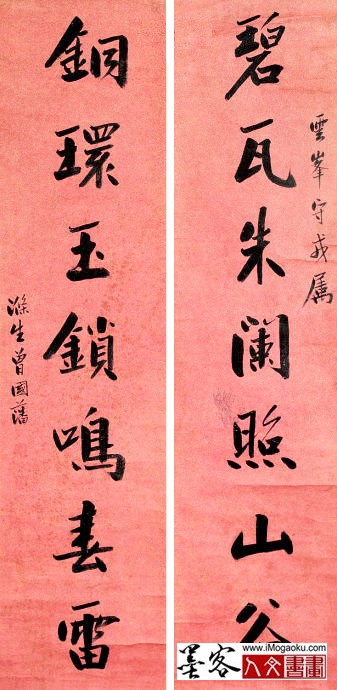 雲峯守戎属
碧瓦朱阑照山谷
銅環玉鎖鳴春雷
滌生曾國藩
www.iMogaoku.com
墨客
人文書畫